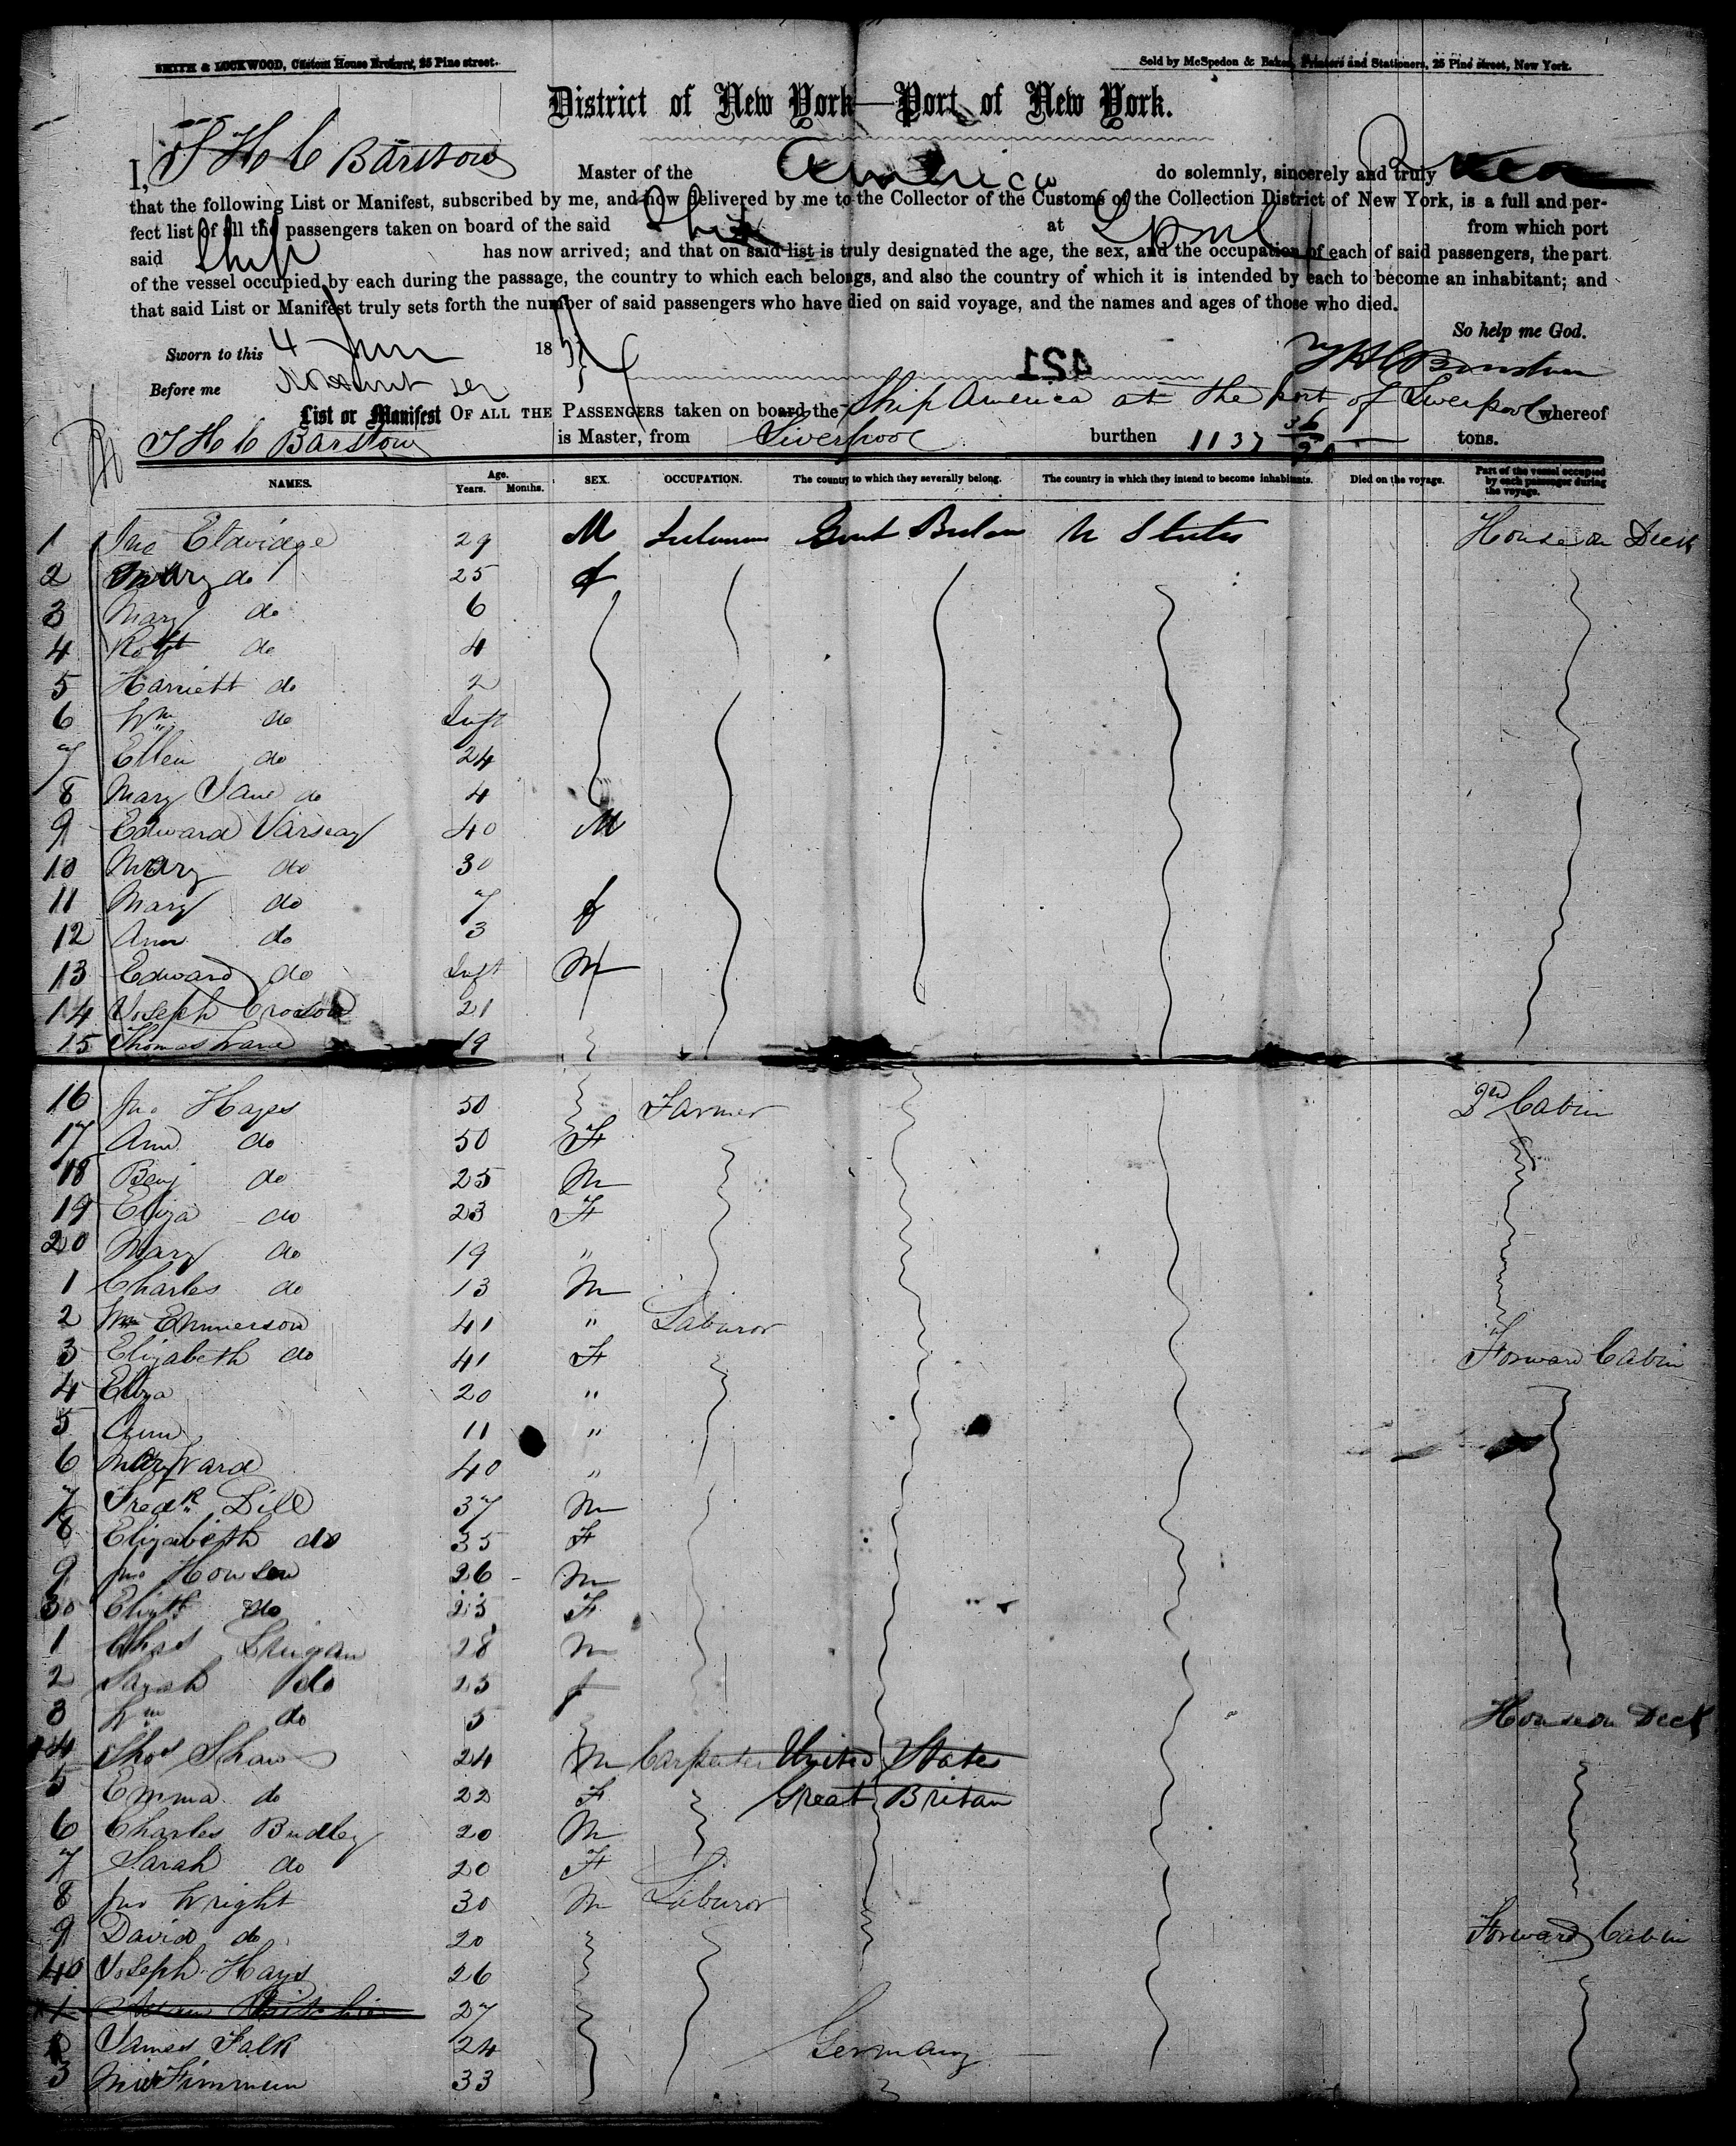 SMITH & LOCKWOOD, Custom House Brokers, 25 Pine street.
Sold by McSpedon & Baker, Printers and Stationers, 25 Pine street, New York.
District of New York—Port of New York.
I, T H C Barstow Master of the America do solemnly, sincerely and truly swear
that the following List or Manifest, subscribed by me, and now delivered by me to the Collector of the Customs of the Collection District of New York, is a full and per-
fect list of all the passengers taken on board of the said Ship at Lpool from which port
said Ship has now arrived; and that on said list is truly designated the age, the sex, and the occupation of each of said passengers, the part
of the vessel occupied by each during the passage, the country to which each belongs, and also the country of which it is intended by each to become an inhabitant; and
that said List or Manifest truly sets forth the number of said passengers who have died on said voyage, and the names and ages of those who died.
So help me God.
Sworn to this 4 June 18
421
T H C Barstow
Before me
List or Manifest OF ALL THE PASSENGERS taken on board the Ship America at the port of Liverpool whereof
T H C Barstow is Master, from Liverpool burthen 1137 tons.
NAMES. Age. Years. Months. SEX. OCCUPATION. The country to which they severally belong. The country in which they intend to become inhabitants. Died on the voyage. Part of the vessel occupied by each passenger during the voyage.
1 Jno Eldvidge 29 M Great Britain U States House on Deck
2 Mary do 25 f
3 Mary do 6
4 Robt do 4
5 Harriett do 2
6 Wm do Inft
7 Ellen do 24
8 Mary Jane do 4
9 Edward Varseay 40 M
10 Mary do 30
11 Mary do 7 f
12 Ann do 3
13 Edward do Inft M
14 Joseph 21
15 Thomas 19
16 Jno Hayes 50 Farmer 2nd Cabin
17 Ann do 50 F
18 Benj do 25 M
19 Eliza do 23 F
20 Mary do 19 "
1 Charles do 13 M
2 Wm Emmerson 41 " Laburor
3 Elizabeth do 41 F Forward Cabin
4 Eliza 20 "
5 Ann 11 "
6 Mary Ward 40 "
7 Fredk Dill 37 M
8 Elizabeth do 35 F
9 Jno Howson 26 M
30 Elizth do 25 F
1 Chas 28 M
2 Sarah do 25 f
3 Wm do 5 House on Deck
4 Thos Shaw 24 M Carpenter United States
5 Emma do 22 F Great Britan
6 Charles Budley 20 M
7 Sarah do 20 F
8 Jno Wright 30 M Laburor
9 David do 20 Forward Cabin
40 Joseph Hays 26
1 27
2 James Falk 24 Germany
3 33